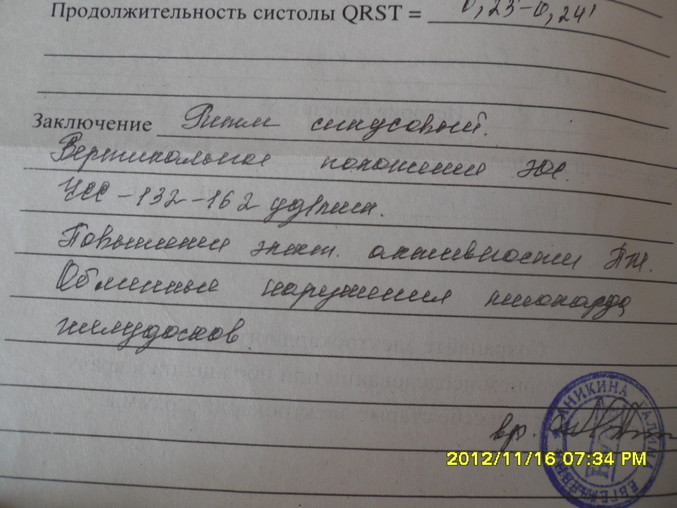 Продолжительность систолы QRST = 0,23-0,24'
Заключение Ритм синусовый.
Вертикальное положение ЭОС.
ЧСС - 132 - 162 уд/мин.
Повышение элект. активности ПЖ.
Обменные нарушения миокарда
желудочков
вр.
2012/11/16 07:34 PM